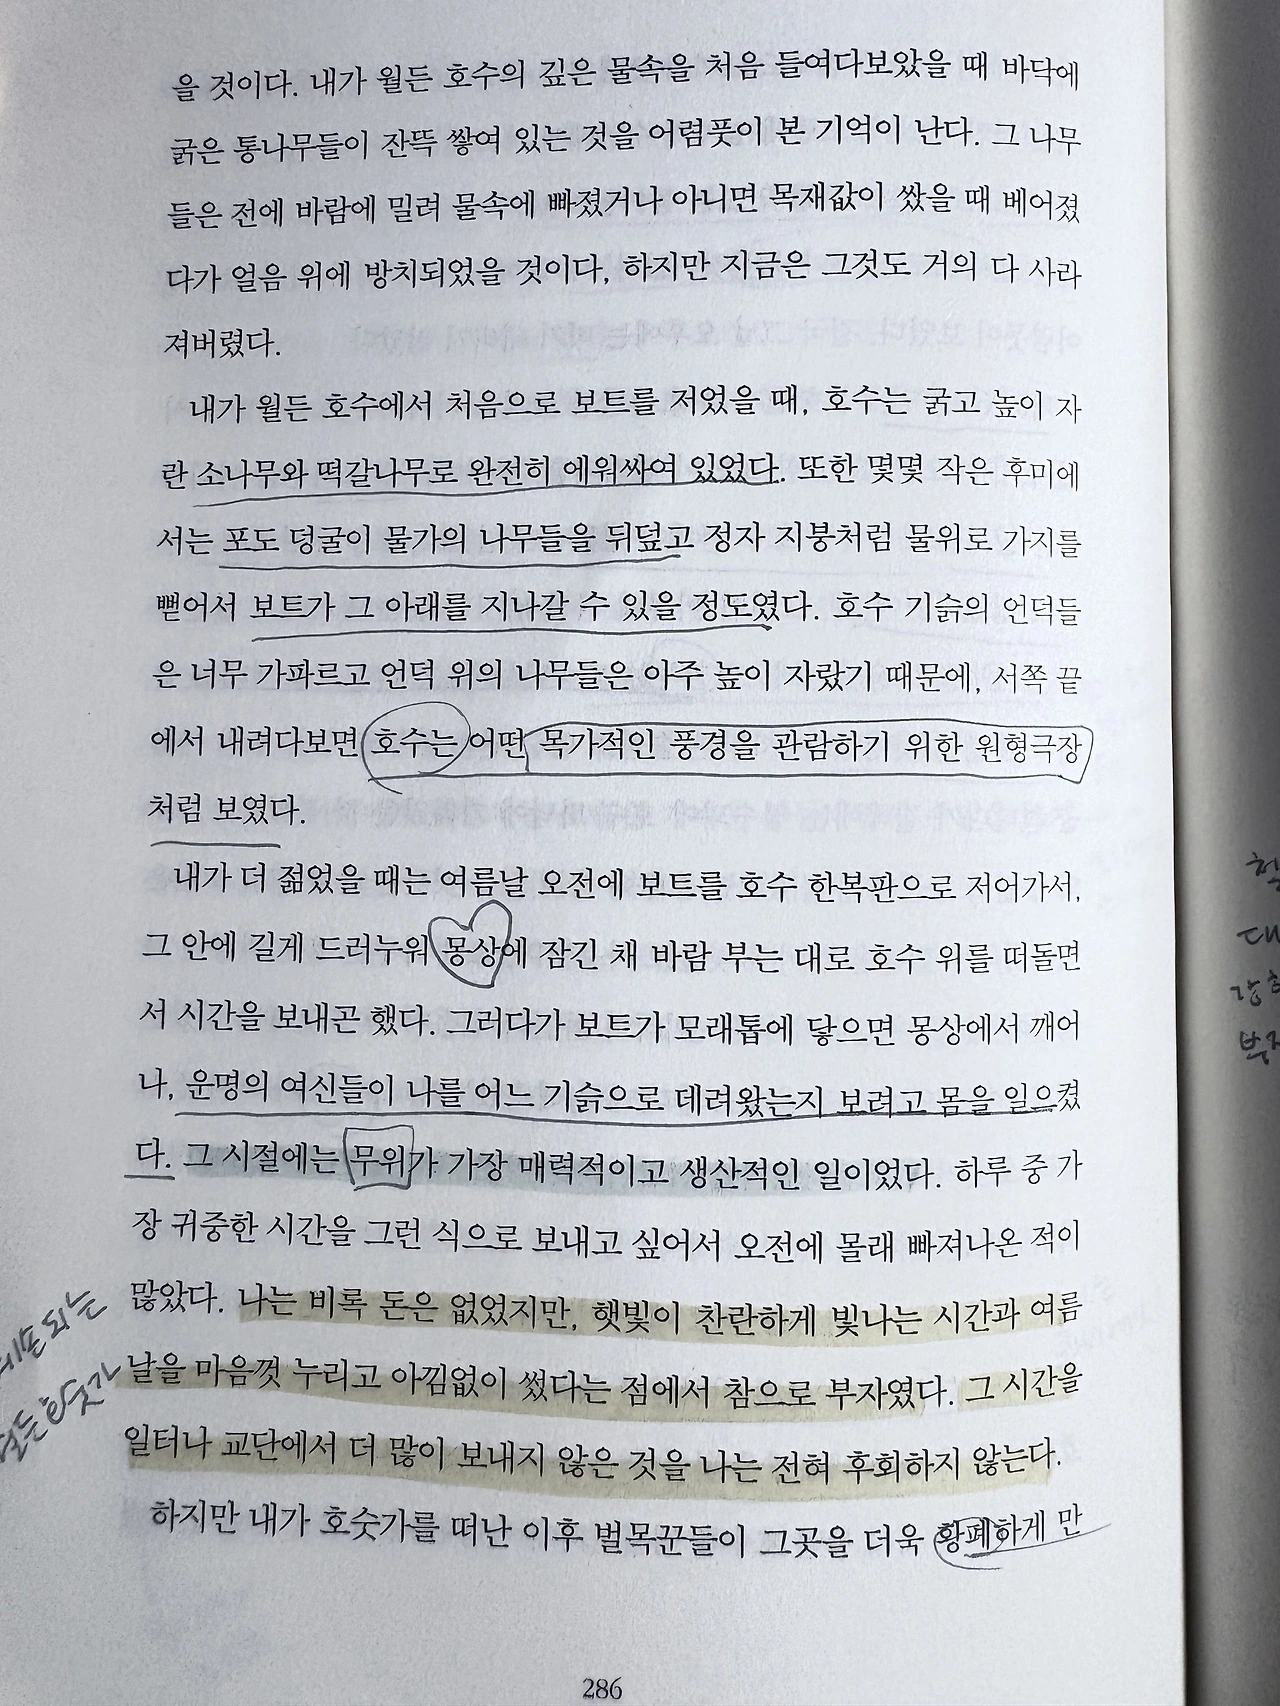 을 것이다. 내가 월든 호수의 깊은 물속을 처음 들여다보았을 때 바닥에
굵은 통나무들이 잔뜩 쌓여 있는 것을 어렴풋이 본 기억이 난다. 그 나무
들은 전에 바람에 밀려 물속에 빠졌거나 아니면 목재값이 쌌을 때 베어졌
다가 얼음 위에 방치되었을 것이다, 하지만 지금은 그것도 거의 다 사라
져버렸다.
내가 월든 호수에서 처음으로 보트를 저었을 때, 호수는 굵고 높이 자
란 소나무와 떡갈나무로 완전히 에워싸여 있었다. 또한 몇몇 작은 후미에
서는 포도 덩굴이 물가의 나무들을 뒤덮고 정자 지붕처럼 물위로 가지를
뻗어서 보트가 그 아래를 지나갈 수 있을 정도였다. 호수 기슭의 언덕들
은 너무 가파르고 언덕 위의 나무들은 아주 높이 자랐기 때문에, 서쪽 끝
에서 내려다보면 호수는 어떤 목가적인 풍경을 관람하기 위한 원형극장
처럼 보였다.
내가 더 젊었을 때는 여름날 오전에 보트를 호수 한복판으로 저어가서,
그 안에 길게 드러누워 몽상에 잠긴 채 바람 부는 대로 호수 위를 떠돌면
서 시간을 보내곤 했다. 그러다가 보트가 모래톱에 닿으면 몽상에서 깨어
나, 운명의 여신들이 나를 어느 기슭으로 데려왔는지 보려고 몸을 일으켰
다. 그 시절에는 무위가 가장 매력적이고 생산적인 일이었다. 하루 중 가
장 귀중한 시간을 그런 식으로 보내고 싶어서 오전에 몰래 빠져나온 적이
많았다. 나는 비록 돈은 없었지만, 햇빛이 찬란하게 빛나는 시간과 여름
날을 마음껏 누리고 아낌없이 썼다는 점에서 참으로 부자였다. 그 시간을
일터나 교단에서 더 많이 보내지 않은 것을 나는 전혀 후회하지 않는다.
하지만 내가 호숫가를 떠난 이후 벌목꾼들이 그곳을 더욱 황폐하게 만
286